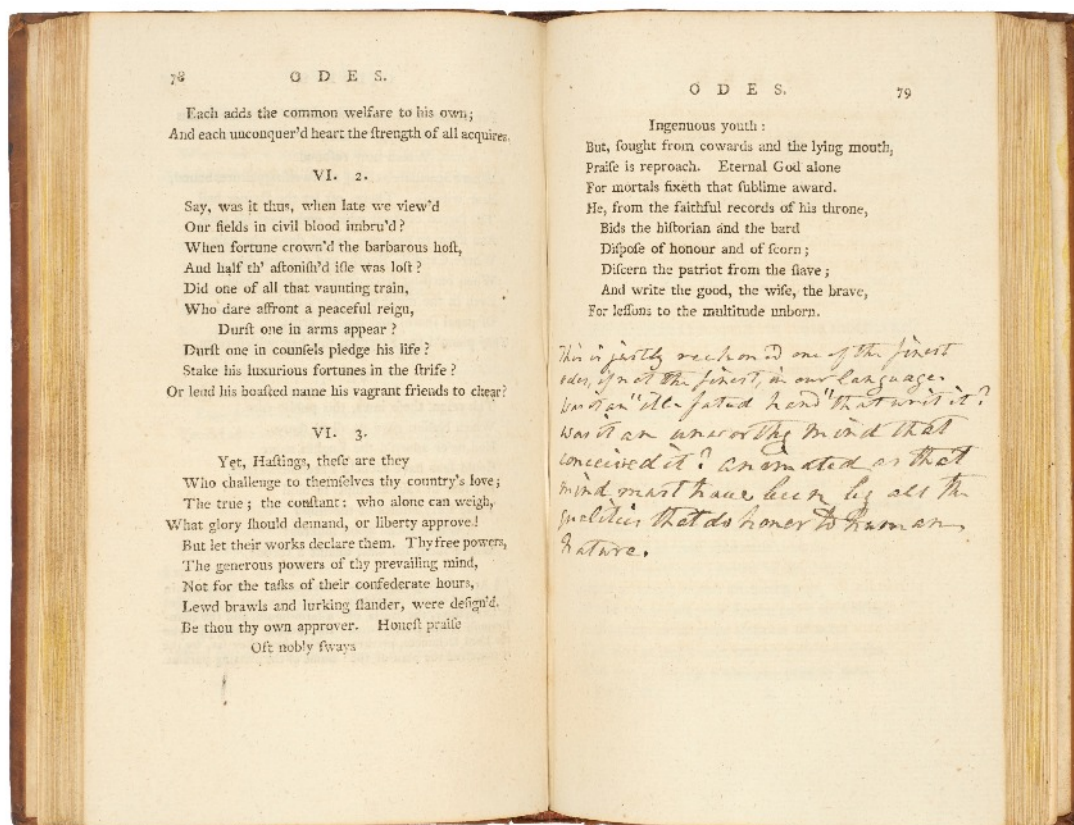 78 ODES.
Each adds the common welfare to his own;
And each unconquer'd heart the ſtrength of all acquires.
VI. 2.
Say, was it thus, when late we view'd
Our fields in civil blood imbru'd?
When fortune crown'd the barbarous hoſt,
And half th' aſtoniſh'd iſle was loſt?
Did one of all that vaunting train,
Who dare affront a peaceful reign,
Durſt one in arms appear?
Durſt one in counſels pledge his life?
Stake his luxurious fortunes in the ſtrife?
Or lend his boaſted name his vagrant friends to chear?
VI. 3.
Yet, Haſtings, theſe are they
Who challenge to themſelves thy country's love;
The true; the conſtant: who alone can weigh,
What glory ſhould demand, or liberty approve!
But let their works declare them. Thy free powers,
The generous powers of thy prevailing mind,
Not for the taſks of their confederate hours,
Lewd brawls and lurking ſlander, were deſign'd.
Be thou thy own approver. Honeſt praiſe
Oft nobly ſways
ODES. 79
Ingenuous youth:
But, ſought from cowards and the lying mouth,
Praiſe is reproach. Eternal God alone
For mortals fixeth that ſublime award.
He, from the faithful records of his throne,
Bids the hiſtorian and the bard
Diſpoſe of honour and of ſcorn;
Diſcern the patriot from the ſlave;
And write the good, the wiſe, the brave,
For leſſons to the multitude unborn.
This is justly reckoned one of the finest
odes, if not the finest, in our language.
Was it an "ill-fated hand" that writ it?
Was it an unworthy mind that
conceived it? animated as that
mind must have been by all the
qualities that do honor to human
Nature.